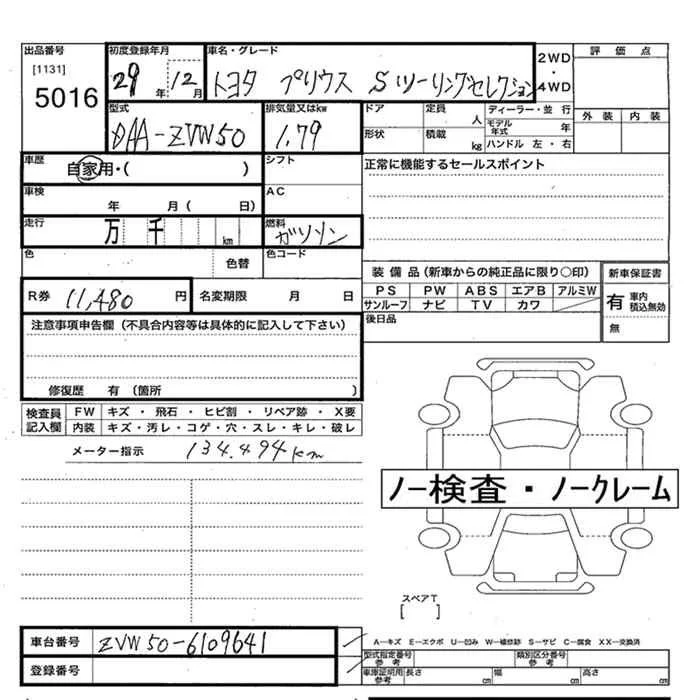 出品番号 初度登録年月 車名・グレード 2WD・4WD 評価点
[1131]
5016
29年 12月 トヨタ プリウス Sツーリングセレクション
型式 排気量又はkw ドア 定員 人 ディーラー・並行 外装 内装
DAA-ZVW50 1.79 形状 積載 kg モデル年式 年
ハンドル 左・右
車歴 自家用・( ) シフト 正常に機能するセールスポイント
車検 年 月( 日) AC
走行 万 千 km 燃料 ガソリン
色 色替 色コード
装備品(新車からの純正品に限り○印) 新車保証書
R券 11,480 円 名変期限 月 日 PS PW ABS エアB アルミW 有 車内積込無効
サンルーフ ナビ TV カワ 無
注意事項申告欄(不具合内容等は具体的に記入して下さい) 後日品
修復歴 有 (箇所 )
検査員記入欄 FW キズ・飛石・ヒビ割・リペア跡・X要
内装 キズ・汚レ・コゲ・穴・スレ・キレ・破レ
メーター指示 134,494km
ノー検査・ノークレーム
スペアT
[ ]
車台番号 ZVW50-6109641 A−キズ E−エクボ U−凹み W−補修跡 S−サビ C−腐食 XX−交換済
型式指定番号 参考 類別区分番号 参考
登録番号 車庫証明用 参考 長さ cm 幅 cm 高さ cm